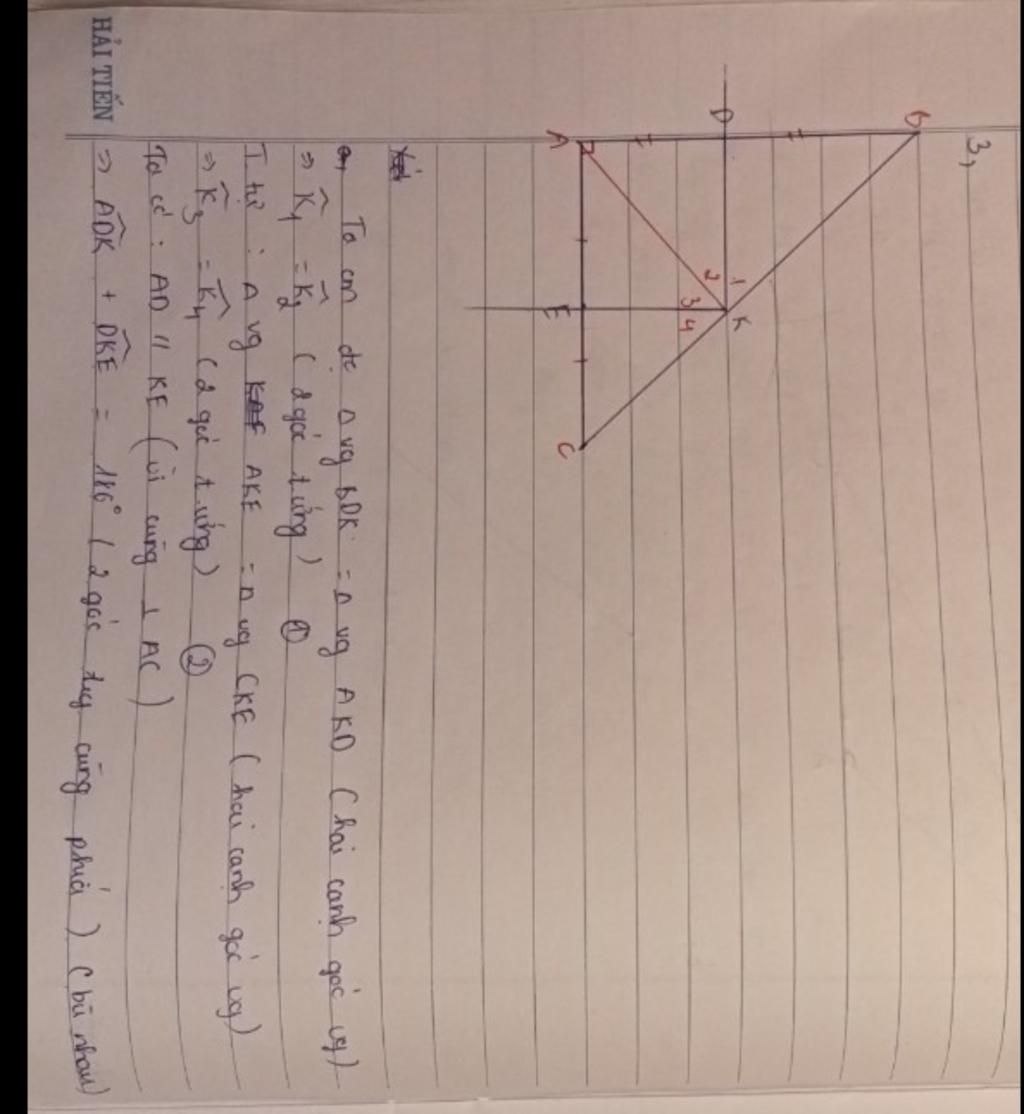 3,
B
D
A
K
1
2
3
4
E
C
a, Ta cm đc Δ vg BDK = Δ vg AKD (hai cạnh góc vg)
=> K̂1 = K̂2 (2 góc t.ứng) ①
T. tự : Δ vg AKE = Δ vg CKE (hai cạnh góc vg)
=> K̂3 = K̂4 (2 góc t.ứng) ②
Ta có : AD // KE (vì cùng ⊥ AC)
=> ADK̂ + DKÊ = 180° (2 góc trg cùng phía) (bù nhau)
HẢI TIẾN